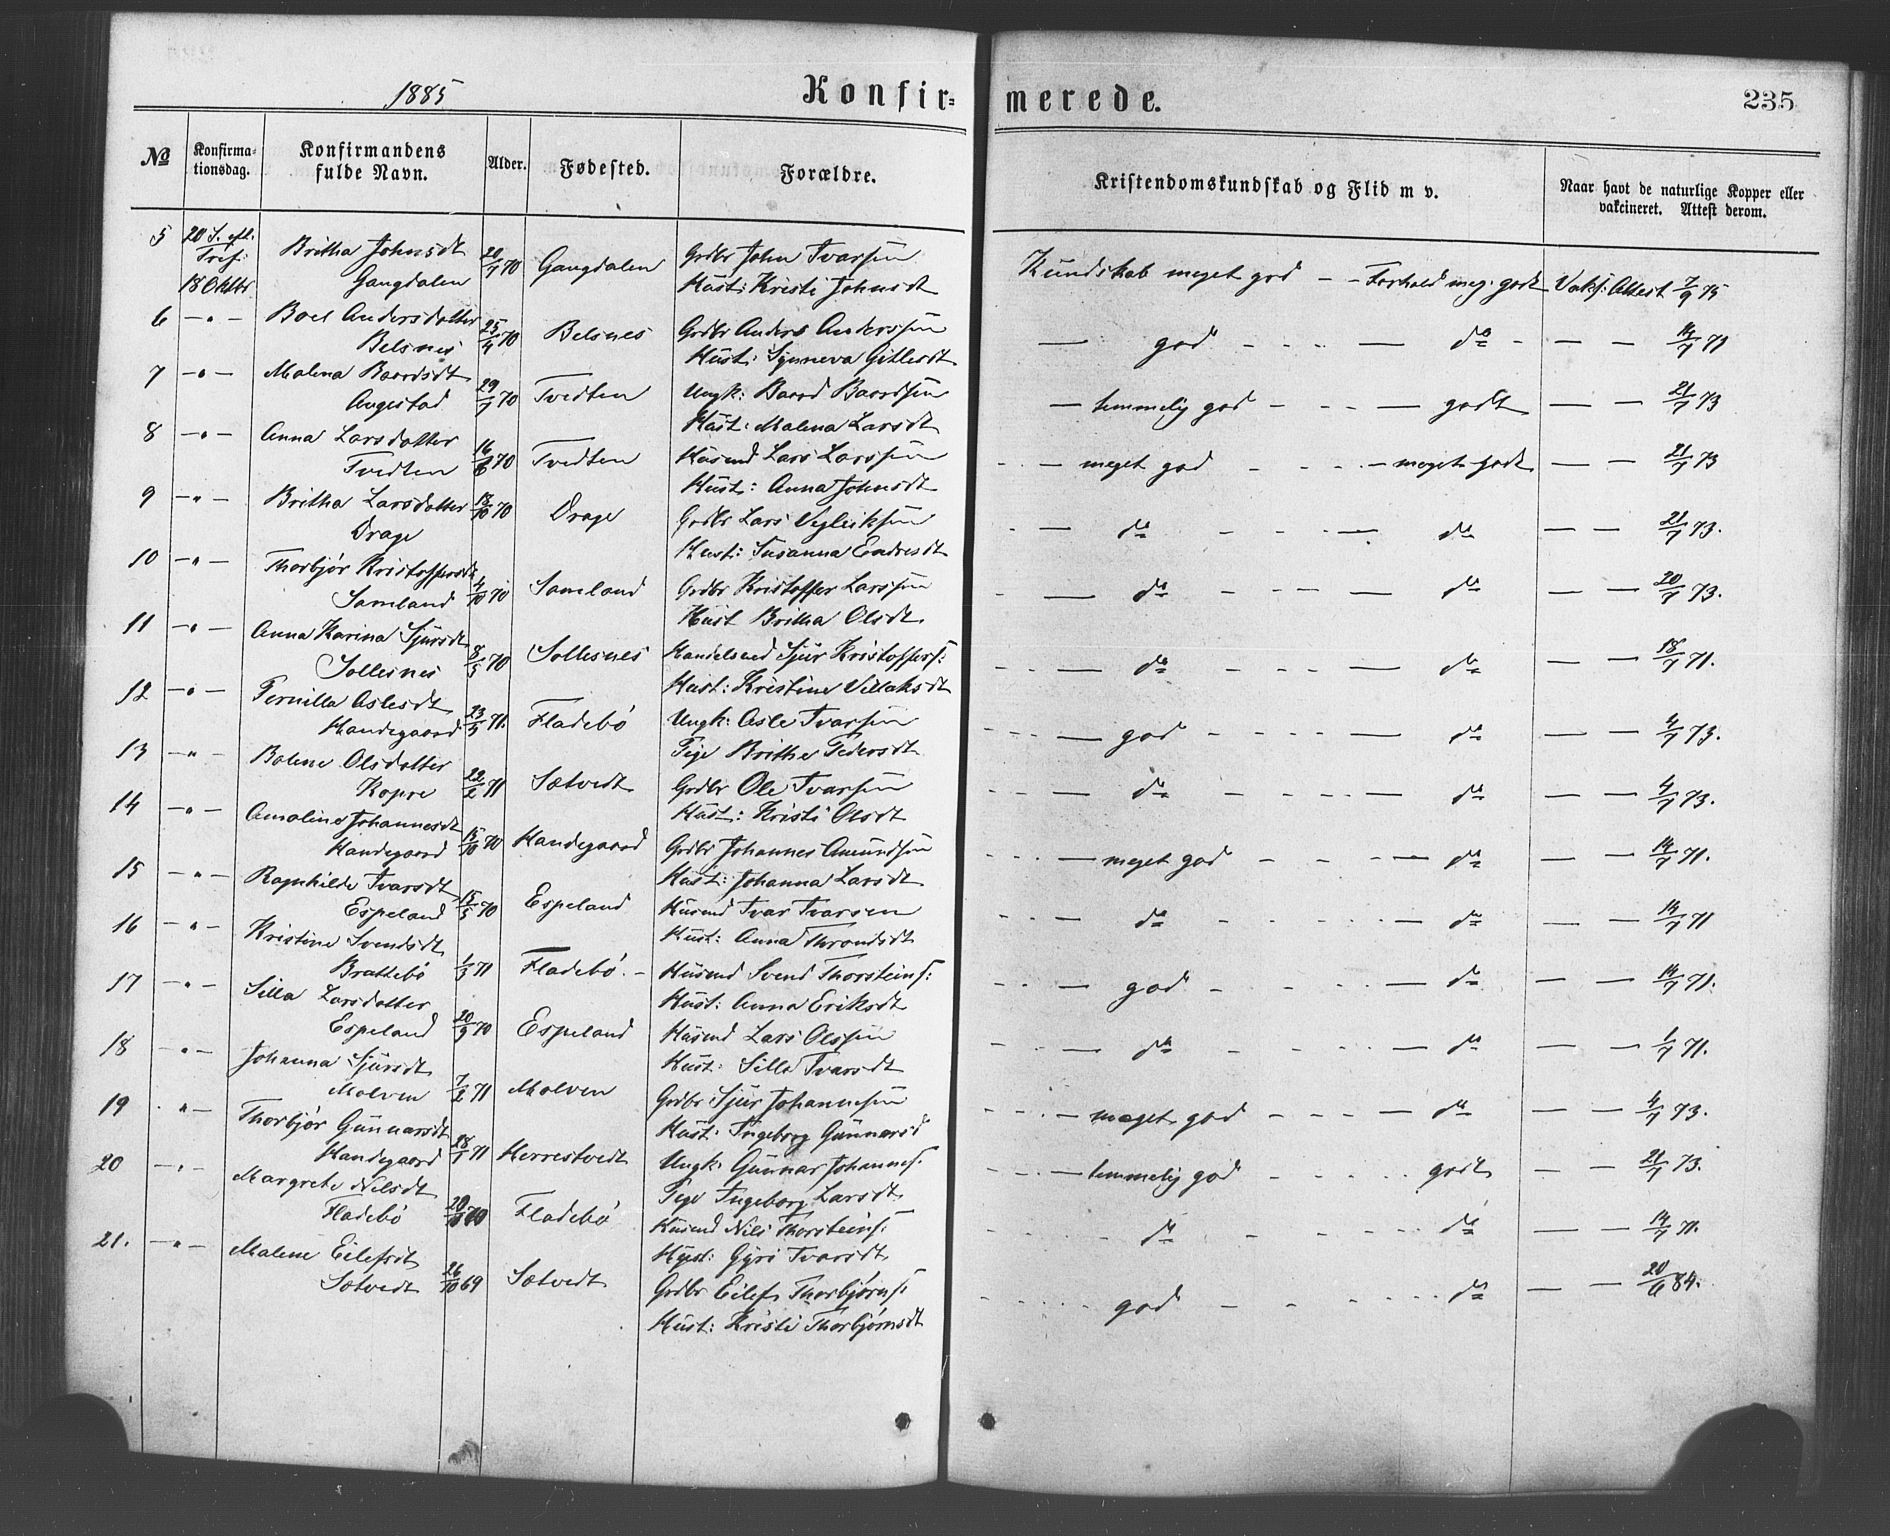 1885
Konfir=
merede.
235
No
Konfirma=
tionsdag.
Konfirmandens
fulde Navn.
Alder.
Fødested.
Forældre.
Kristendomskundskab og Flid m v.
Naar havt de naturlige Kopper eller
vakcineret. Attest derom.
5 20 S. eft. Britha Johnsdt 20/7 70 Gangdalen Grdbr John Ivarsen
Tref: 18 Oktbr Gangdalen Hust: Kristi Johnsdt Kundskab meget god - - Forhold meg. godt Vaks: Attest 7/9 75
6 -"- Boel Andersdatter 25/4 70 Belsnes Grdbr Anders Anderssen
Belsnes Hust: Synneva Gitlesdt — god - - - — do - — — 14/7 71
7 -"- Malena Baardsdt 29/7 70 Tvedten Ungk: Baard Baardsen
Augestad Hust: Malena Larsdt — temmelig god - - - — godt — — 21/7 73
8 -"- Anna Larsdatter 16/6 70 Tvedten Husmd Lars Larssen
Tvedten Hust: Anna Johnsdt - — meget god - - - - — meget godt — — 21/7 73
9 -"- Britha Larsdatter 18/10 70 Drage Grdbr Lars Vegleiksen
Drage Hust: Susanna Endresdt - — do - - - — do — — 21/7 73.
10 -"- Thorbjør Kristoffersdt 4/10 70 Samland Grdbr Kristoffer Larssen
Samland Hust Britha Olsdt - — do - - - — do — — 20/7 73.
11 -"- Anna Karina Sjursdt 8/5 70 Sollesnes Handelsmd Sjur Kristoffers:
Sollesnes Hust: Kristine Villaksdt - - — do - - - — do — — 18/7 71.
12 -"- Pernilla Aslesdt 23/5 71. Fladebö Ungk: Asle Ivarsen
Handegaard Pige Britha Pedersdt - - - — god - - - - — do — — 4/7 73.
13 -"- Bolene Olsdatter 22/2 71 Sætvedt Grdbr Ole Ivarsen
Kopre Hust: Kristi Olsdt - - — do - - - - — do — — 4/7 73.
14 -"- Amaline Johannesdt 15/10 70 Handegaard Grdbr Johannes Amundsen
Handegaard Hust: Johanna Larsdt - - - — meget god - - - — do — — 14/7 71.
15 -"- Ragnhilde Ivarsdt 15/5 70 Espeland Husmd Ivar Ivarsen
Espeland Hust: Anna Throndsdt - - — do - - - - — do — — 14/7 71
16 -"- Kristine Svendsdt 1/3 71 Fladebö. - Husmd Svend Thorsteins:
Brattebö Hust: Anna Eriksdt - - — god - - - - — do — — 14/7 71.
17 -"- Silla Larsdatter 20/9 70 Espeland Husmd Lars Olssen
Espeland Hust: Silla Ivarsdt - - — do - - - - — do — — 1/7 71.
18 -"- Johanna Sjursdt 7/2 71 Molven Grdbr Sjur Johannesen
Molven Hust: Ingeborg Gunnarsd - - - — meget god - - - — do — — 4/7 73.
19 -"- Thorbjør Gunnarsdt 28/1 71 Herrestvedt Ungk: Gunnar Johannes:
Handegaard Pige Ingeborg Larsdt - - - — temmelig god - - - - godt — — 21/7 73.
20 -"- Margrete Nilsdt 70 Fladebö Husmd Nils Thorsteins:
Fladebö Hust: Gyri Ivarsdt - - - - do - - - - do — — 14/7 71.
21. -"- Malene Eilefsdt 26/10 69 Sætvedt Grdbr Eilef Thorbjørns:
Sætvedt Hust: Kristi Thorbjørnsdt - - - - god - - - - - do — — 20/6 84.